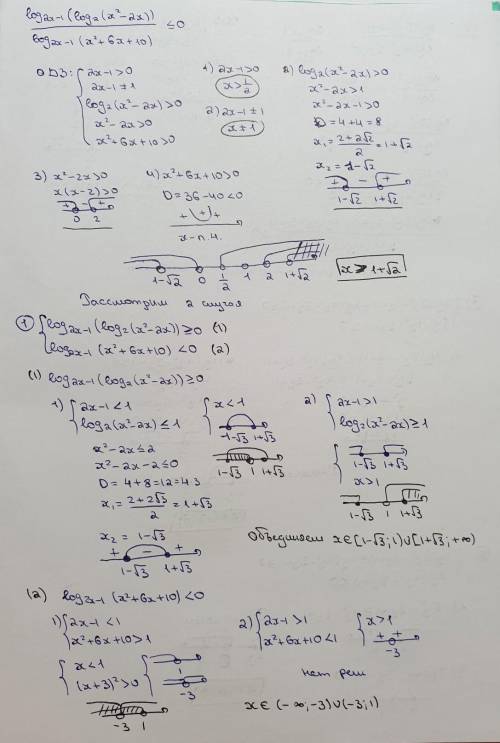 log₂ₓ₋₁(log₂(x²-2x)) / log₂ₓ₋₁(x²+6x+10) ≤0
ОДЗ: { 2x-1>0
2x-1≠1
log₂(x²-2x)>0
x²-2x>0
x²+6x+10>0
1) 2x-1>0
x>1/2
2) 2x-1≠1
x≠1
2) log₂(x²-2x)>0
x²-2x>1
x²-2x-1>0
D=4+4=8
x₁=(2+2√2)/2=1+√2
x₂=1-√2
+ - +
1-√2 1+√2
3) x²-2x>0
x(x-2)>0
+ - +
0 2
4) x²+6x+10>0
D=36-40<0
+ (+) +
x-л.ч.
1-√2 0 1/2 1 2 1+√2
x>1+√2
Рассмотрим 2 случая
① { log₂ₓ₋₁(log₂(x²-2x))≥0 (1)
log₂ₓ₋₁(x²+6x+10)<0 (2)
(1) log₂ₓ₋₁(log₂(x²-2x))≥0
1) { 2x-1<1
log₂(x²-2x)≤1
x²-2x≤2
x²-2x-2≤0
D=4+8=12=4·3
x₁=(2+2√3)/2=1+√3
x₂=1-√3
+ - +
1-√3 1+√3
{ x<1
1-√3 1+√3
1-√3 1 1+√3
2) { 2x-1>1
log₂(x²-2x)≥1
{ 1-√3 1+√3
x>1
1-√3 1 1+√3
Объединяем x∈[1-√3;1)∪[1+√3;+∞)
(2) log₂ₓ₋₁(x²+6x+10)<0
1) { 2x-1<1
x²+6x+10>1
{ x<1
(x+3)²>0
{ 1
-3
-3 1
2) { 2x-1>1
x²+6x+10<1
{ x>1
+ +
-3
нет реш
x∈(-∞;-3)∪(-3;1)